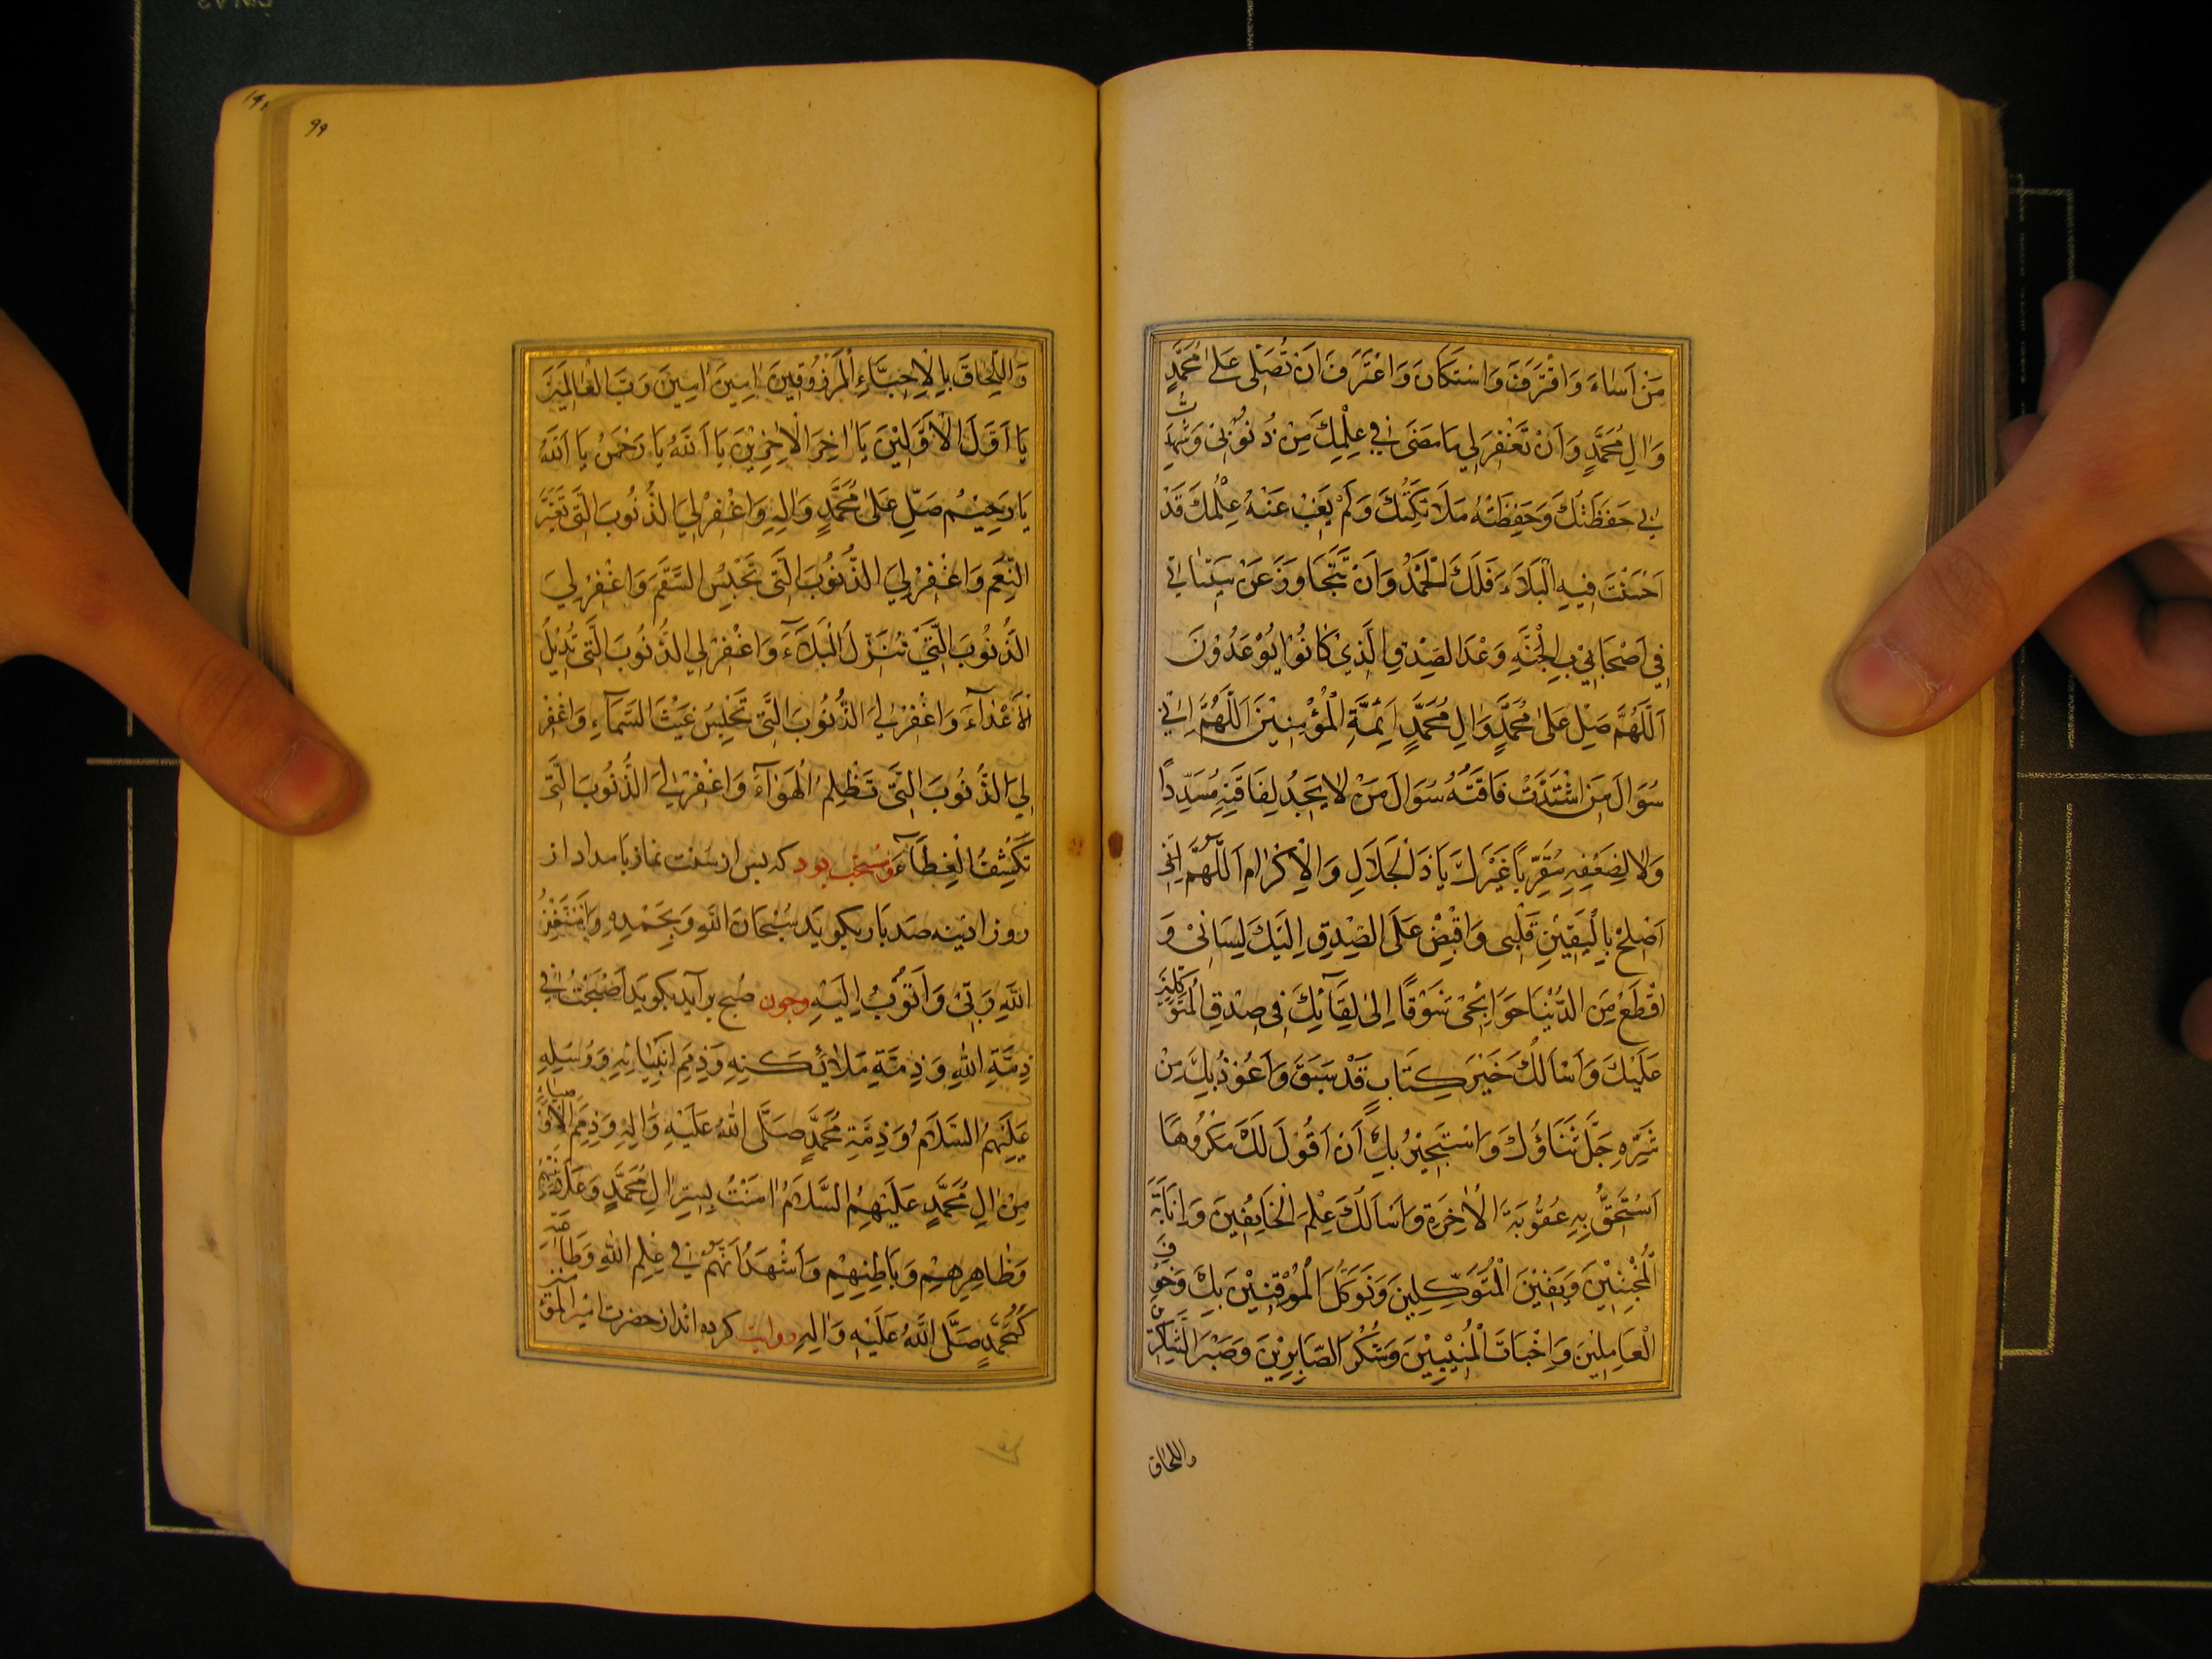 مَنْ اَسٰاءَ وَاقْتَرَفَ وَاسْتَكانَ وَاعْتَرَفَ اَنْ تُصَلِّى عَلىٰ مُحَمَّدٍ
وَاٰلِ مُحَمَّدٍ وَاَنْ تَغْفِرَ لِي مَا مَضَى فِي عِلْمِكَ مِنْ ذُنُوْبِيْ وَشَهِدَتْ
بِي حَفَظَتُكَ وَحَفِظَتْهُ مَلَائِكَتُكَ وَلَمْ يَغِبْ عَنْهُ عِلْمُكَ قَدْ
اَحْسَنْتَ فِيهِ الْبَلَاءَ فَلَكَ الْحَمْدُ وَاَنْ تَتَجَاوَزَ عَنْ سَيِّئٰاتِي
فِي اَصْحَابِ الْجَنَّةِ وَعْدَ الصِّدْقِ الَّذِيْ كَانُوْا يُوْعَدُوْنَ
اَللّٰهُمَّ صَلِّ عَلىٰ مُحَمَّدٍ وَاٰلِ مُحَمَّدٍ اَئِمَّةِ الْمُؤْمِنِيْنَ اَللّٰهُمَّ اِنِّي
سُؤَالَ مَنِ اشْتَدَّتْ فَاقَتُهُ سُؤَالَ مَنْ لٰا يَجِدُ لِفَاقَتِهِ مُسَدِّدًا
وَلٰا لِضَعْفِهِ مُقَوِّيًا غَيْرَكَ يَا ذَا الْجَلَالِ وَالْاِكْرٰامِ اَللّٰهُمَّ
اَصْلِحْ بِالْيَقِيْنِ قَلْبِى وَاقْبِضْ عَلَى الصِّدْقِ اِلَيْكَ لِسَانِىْ وَ
اقْطَعْ مِنَ الدُّنْيَا حَوَائِجِىْ شَوْقًا اِلىٰ لِقَائِكَ فِى صِدْقِ الْمُتَوَكِّلِيْنَ
عَلَيْكَ وَاَسْاَلُكَ خَيْرَ كِتَابٍ قَدْ سَبَقَ وَاَعُوْذُ بِكَ مِنْ
شَرِّهِ جَلَّ ثَنَاؤُكَ وَاَسْتَجِيْرُ بِكَ اَنْ اَقُوْلَ لَكَ مَكْرُوهًا
اَسْتَحِقُّ بِهِ عُقُوْبَةَ الْاٰخِرَةِ وَاَسْاَلُكَ عِلْمَ الْخَائِفِيْنَ وَاِنَابَةَ
الْمُخْبِتِيْنَ وَيَقِيْنَ الْمُتَوَكِّلِيْنَ وَتَوَكُّلَ الْمُوْقِنِيْنَ بِكَ وَخَوْفَ
الْعَامِلِيْنَ وَاِخْبَاتَ الْمُنِيْبِيْنَ وَشُكْرَ الصَّابِرِيْنَ وَصَبْرَ الشَّاكِرِيْنَ
واللحاق
۹۹
وَاللِّحَاقَ بِالْاَحِبَّاءِ الْمَرْزُوْقِيْنَ اٰمِيْنَ اٰمِيْنَ رَبَّ الْعٰالَمِيْنَ
يَا اَوَّلَ الْاَوَّلِيْنَ يَا اٰخِرَ الْاٰخِرِيْنَ يَا اَللّٰهُ يَا رَحْمٰنُ يَا اَللّٰهُ
يَا رَحِيْمُ صَلِّ عَلىٰ مُحَمَّدٍ وَاٰلِهِ وَاغْفِرْ لِيَ الذُّنُوبَ الَّتِي تُغَيِّرُ
النِّعَمَ وَاغْفِرْ لِيَ الذُّنُوْبَ الَّتِي تَحْبِسُ السَّقَمَ وَاغْفِرْ لِيَ
الذُّنُوْبَ الَّتِيْ تُنَزِّلُ الْبَلَاءَ وَاغْفِرْ لِي الذُّنُوبَ الَّتِي تُدِيْلُ
الْاَعْدٰاءَ وَاغْفِرْ لِيَ الذُّنُوْبَ الَّتِيْ تَحْبِسُ غَيْثَ السَّمَاءِ وَاغْفِرْ
لِيَ الذُّنُوْبَ الَّتِيْ تُظْلِمُ الْهَوٰاءَ وَاغْفِرْ لِيَ الذُّنُوْبَ الَّتِيْ
تَكْشِفُ الْغِطَآءَ وَمستحب بود كه پس از سنت نماز بامداد از
روز ادينه صد بار بكويد سُبْحَانَ اللهِ وَبِحَمْدِهِ وَاَسْتَغْفِرُ
اللهَ رَبِّيْ وَاَتُوْبُ اِلَيْهِ وچون صبح برآيد بكويد اَصْبَحْتُ فِي
ذِمَّةِ اللهِ وَذِمَّةِ مَلٰائِكَتِهِ وَذِمَمِ اَنْبِيَائِهِ وَرُسُلِهِ
عَلَيْهِمُ السَّلَامُ وَذِمَّةِ مُحَمَّدٍ صَلَّى اللهُ عَلَيْهِ وَاٰلِهِ وَذِمَمِ الْاَوْصِيَاءِ
مِنْ اٰلِ مُحَمَّدٍ عَلَيْهِمُ السَّلَامُ اٰمَنْتُ بِسِرِّ اٰلِ مُحَمَّدٍ وَعَلَانِيَتِهِمْ
وَظَاهِرِهِمْ وَبَاطِنِهِمْ وَاَشْهَدُ اَنَّهُمْ فِي عِلْمِ اللهِ وَطَاعَتِهِ
كَمُحَمَّدٍ صَلَّى اللهُ عَلَيْهِ وَاٰلِهِ وروايت كرده اند از حضرت امير المؤمنين